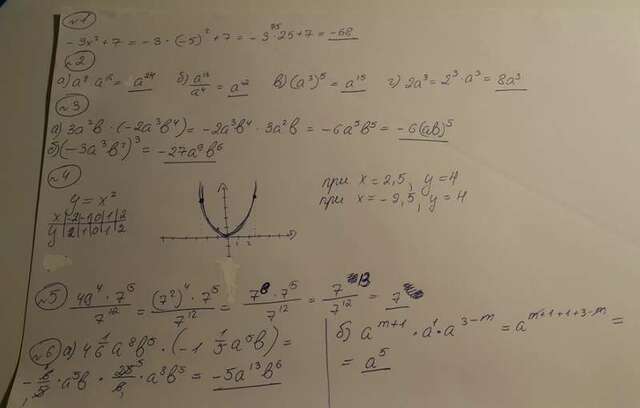 №1
-3x²+7 = -3·(-5)²+7 = -3·25+7 = -68
75
№2
а) a⁸·a¹⁶ = a²⁴ б) a¹⁶/a⁴ = a¹² в) (a³)⁵ = a¹⁵ г) 2a³ = 2³·a³ = 8a³
№3
а) 3a²b·(-2a³b⁴) = -2a³b⁴·3a²b = -6a⁵b⁵ = -6(ab)⁵
б) (-3a³b²)³ = -27a⁹b⁶
№4
y = x²
x -2 -1 0 1 2
y 2 1 0 1 2
при x = 2,5, y = 4
при x = -2,5, y = 4
№5 49⁴·7⁵/7¹² = (7²)⁴·7⁵/7¹² = 7⁸·7⁵/7¹² = 7¹³/7¹² = 7
№6 а) 4 1/6 a⁸b⁵·(-1 1/5 a⁵b) =
-6/5·a⁵b·25/6·a⁸b⁵ = -5a¹³b⁶
б) a^{m+1}·a¹·a^{3-m} = a^{m+1+1+3-m} =
= a⁵